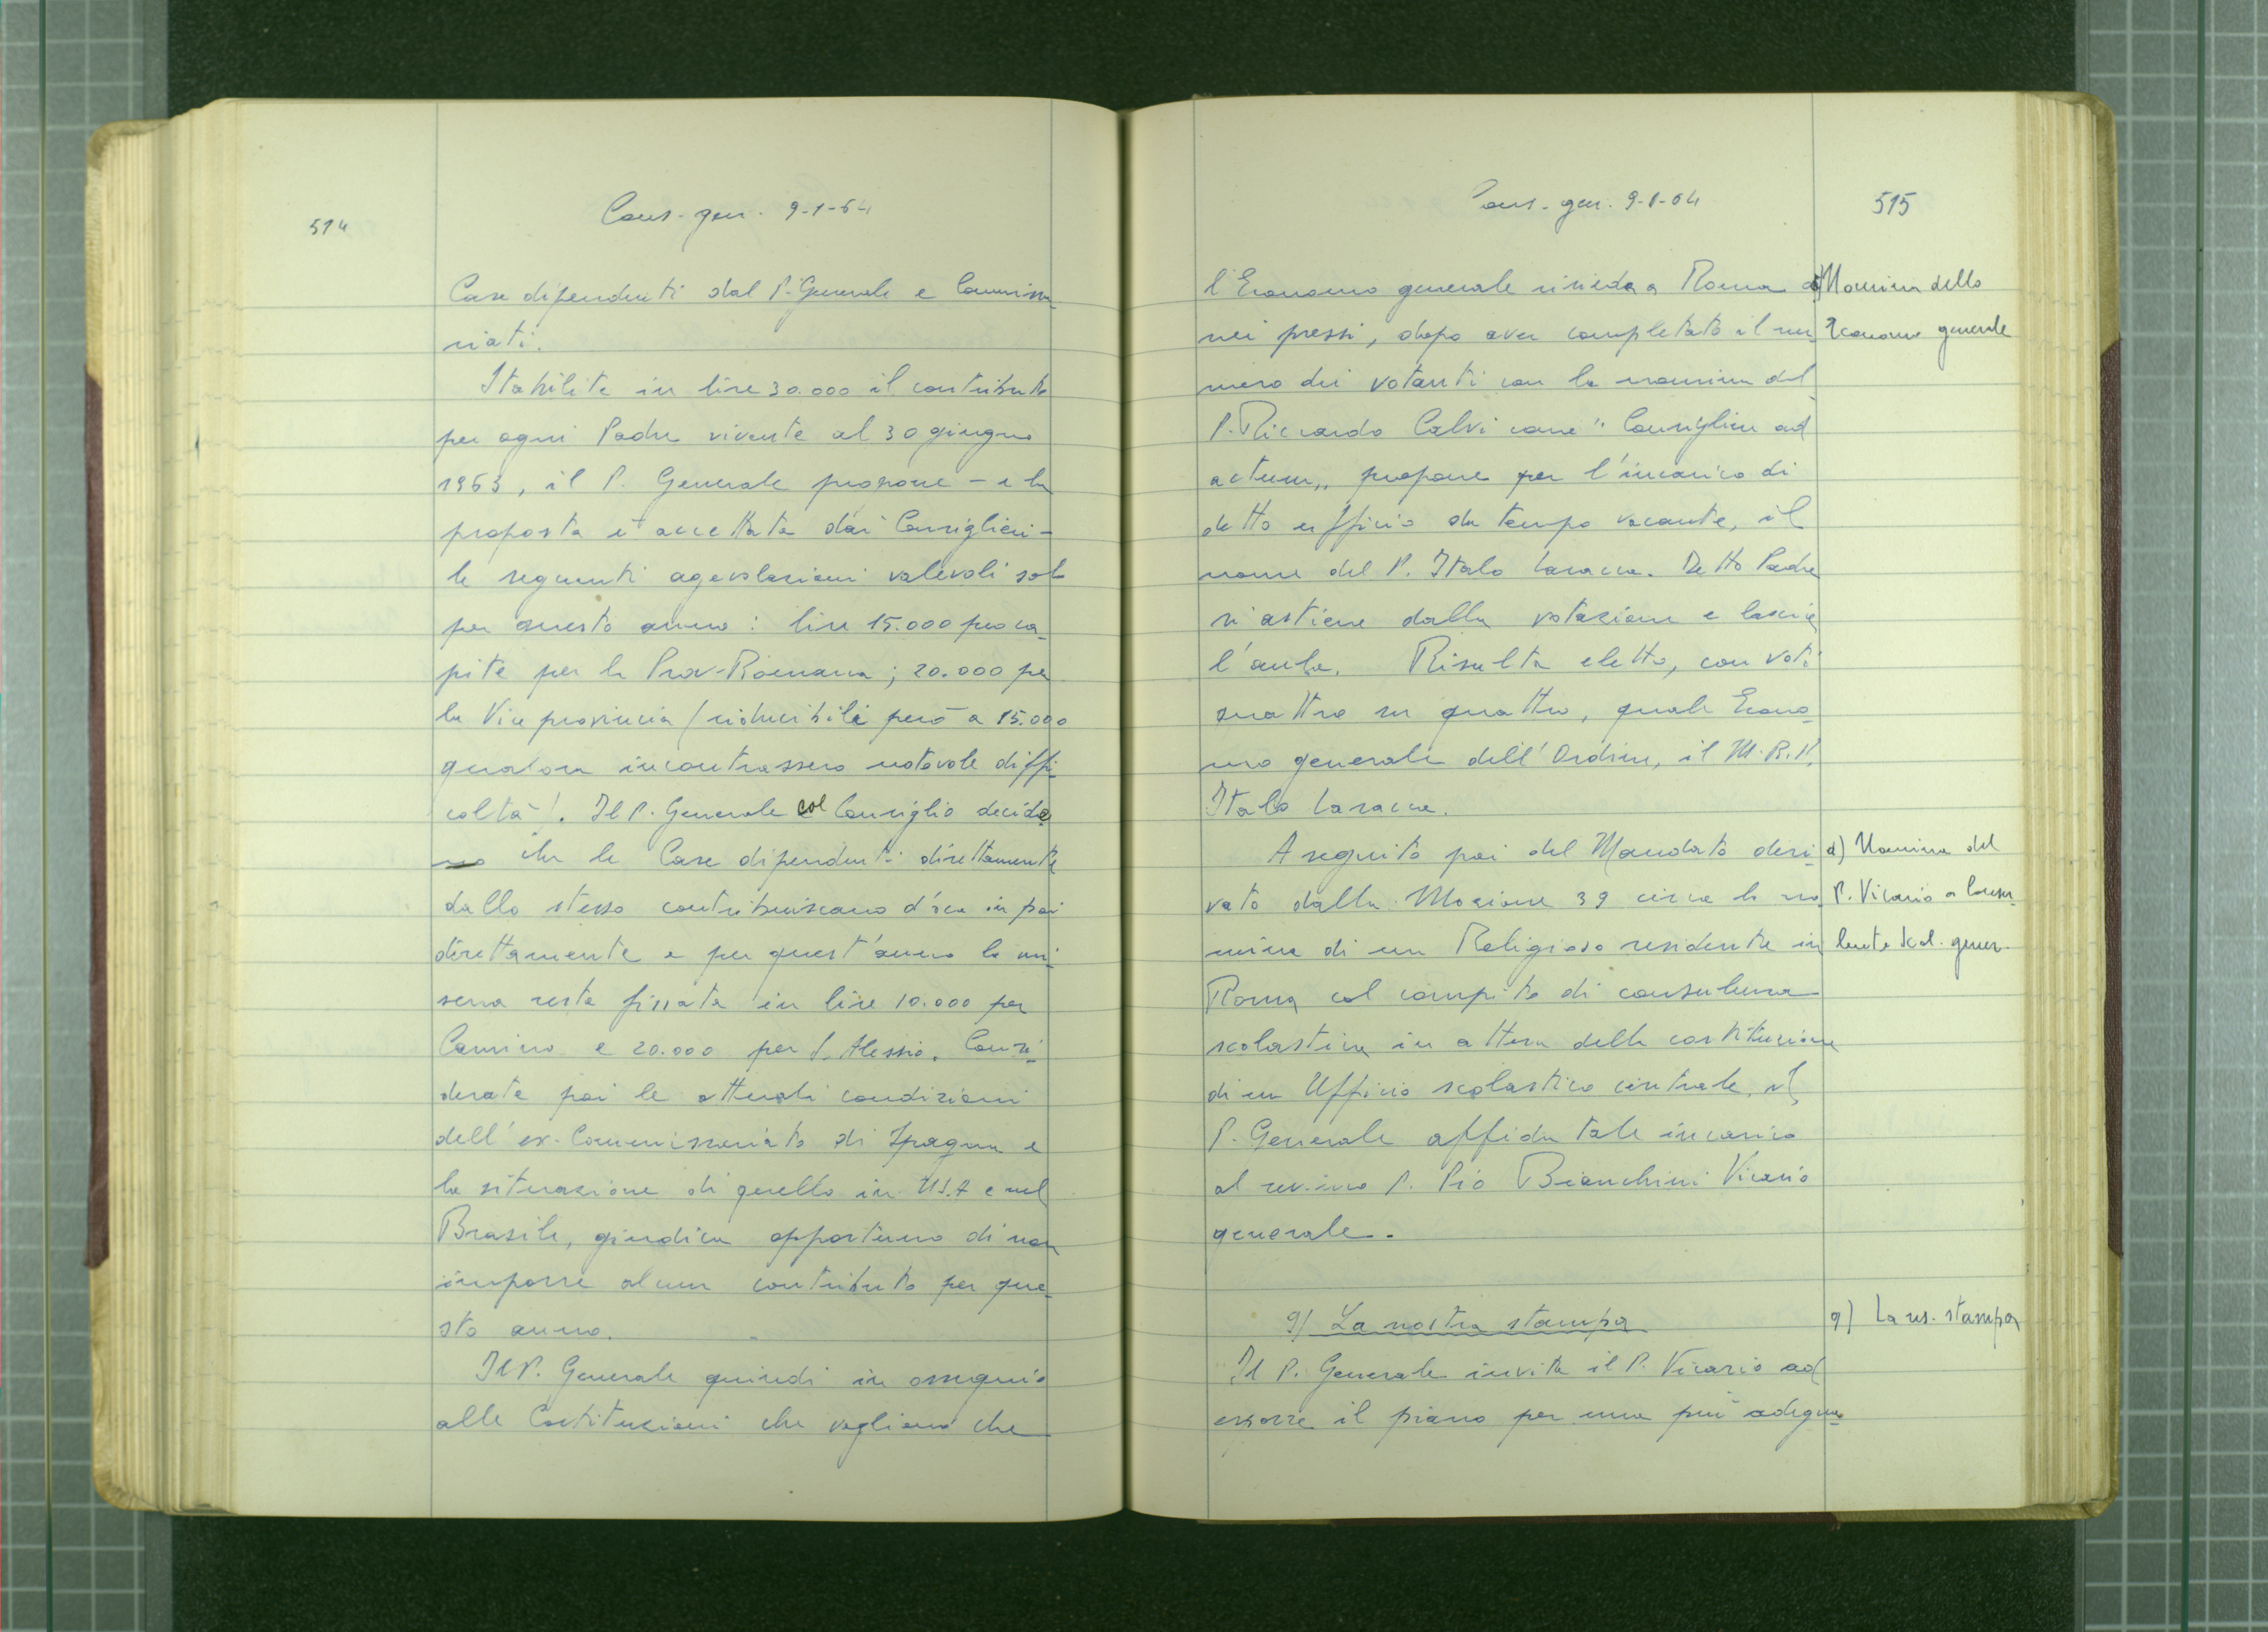 514
Cons. gen. 9-1-64
Case dipendenti dal P. Generale e Commissa-
riati.
Stabilite in lire 30.000 il contributo
per ogni Padre vivente al 30 giugno
1963, il P. Generale propone - e la
proposta è accettata dai Consiglieri -
le seguenti agevolazioni valevoli solo
per questo anno: lire 15.000 pro ca-
pite per la Prov. Romana; 20.000 per
la Vice provincia (riducibili però a 15.000
qualora incontrassero notevole diffi-
coltà). Il P. Generale col Consiglio decide
che le Case dipendenti direttamente
dallo stesso contribuiscano d'ora in poi
direttamente e per quest'anno la mi-
sura resta fissata in lire 10.000 per
Camino e 20.000 per S. Alessio. Consi-
derate poi le attuali condizioni
dell'ex-Commissariato di Spagna e
la situazione di quello in USA e nel
Brasile, giudica opportuno di non
imporre alcun contributo per que-
sto anno.
Il P. Generale quindi in ossequio
alle Costituzioni che vogliono che
Cons. gen. 9-1-64
515
l'Economo generale risieda a Roma o
nei pressi, dopo aver completato il nu-
mero dei votanti con la nomina del
P. Riccardo Calvi come "Consigliere ad
actum", propone per l'incarico di
detto ufficio da tempo vacante, il
nome del P. Italo Laracca. Detto Padre
si astiene dalla votazione e lascia
l'aula. Risulta eletto, con voti
quattro su quattro, quale Econo-
mo generale dell'Ordine, il M.R.P.
Italo Laracca.
A seguito poi del Mandato deri-
vato dalla Mozione 39 circa la no-
mina di un Religioso residente in
Roma col compito di consulenza
scolastica in attesa della costituzione
di un Ufficio scolastico centrale, il
P. Generale affida tale incarico
al rev.mo P. Pio Bianchini Vicario
generale.
9) La nostra stampa
Il P. Generale invita il P. Vicario ad
esporre il piano per una più adegua-
Nomina dello
Economo generale
d) Nomina del
P. Vicario a Consu-
lente Scol. gener.
9) La ns. stampa